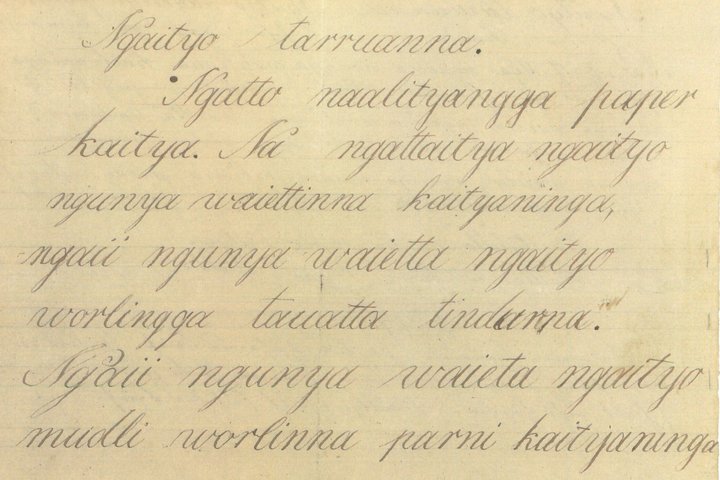 Ngaityo tarruanna.
Ngatto naalityangga paper
kaitya. Na ngattaitya ngaityo
ngunya waiettinna kaityaninga,
ngaii ngunya waietta ngaityo
worlingga tauatta tindarna.
Ngaii ngunya waieta ngaityo
mudli worlinna parni kaityaninga